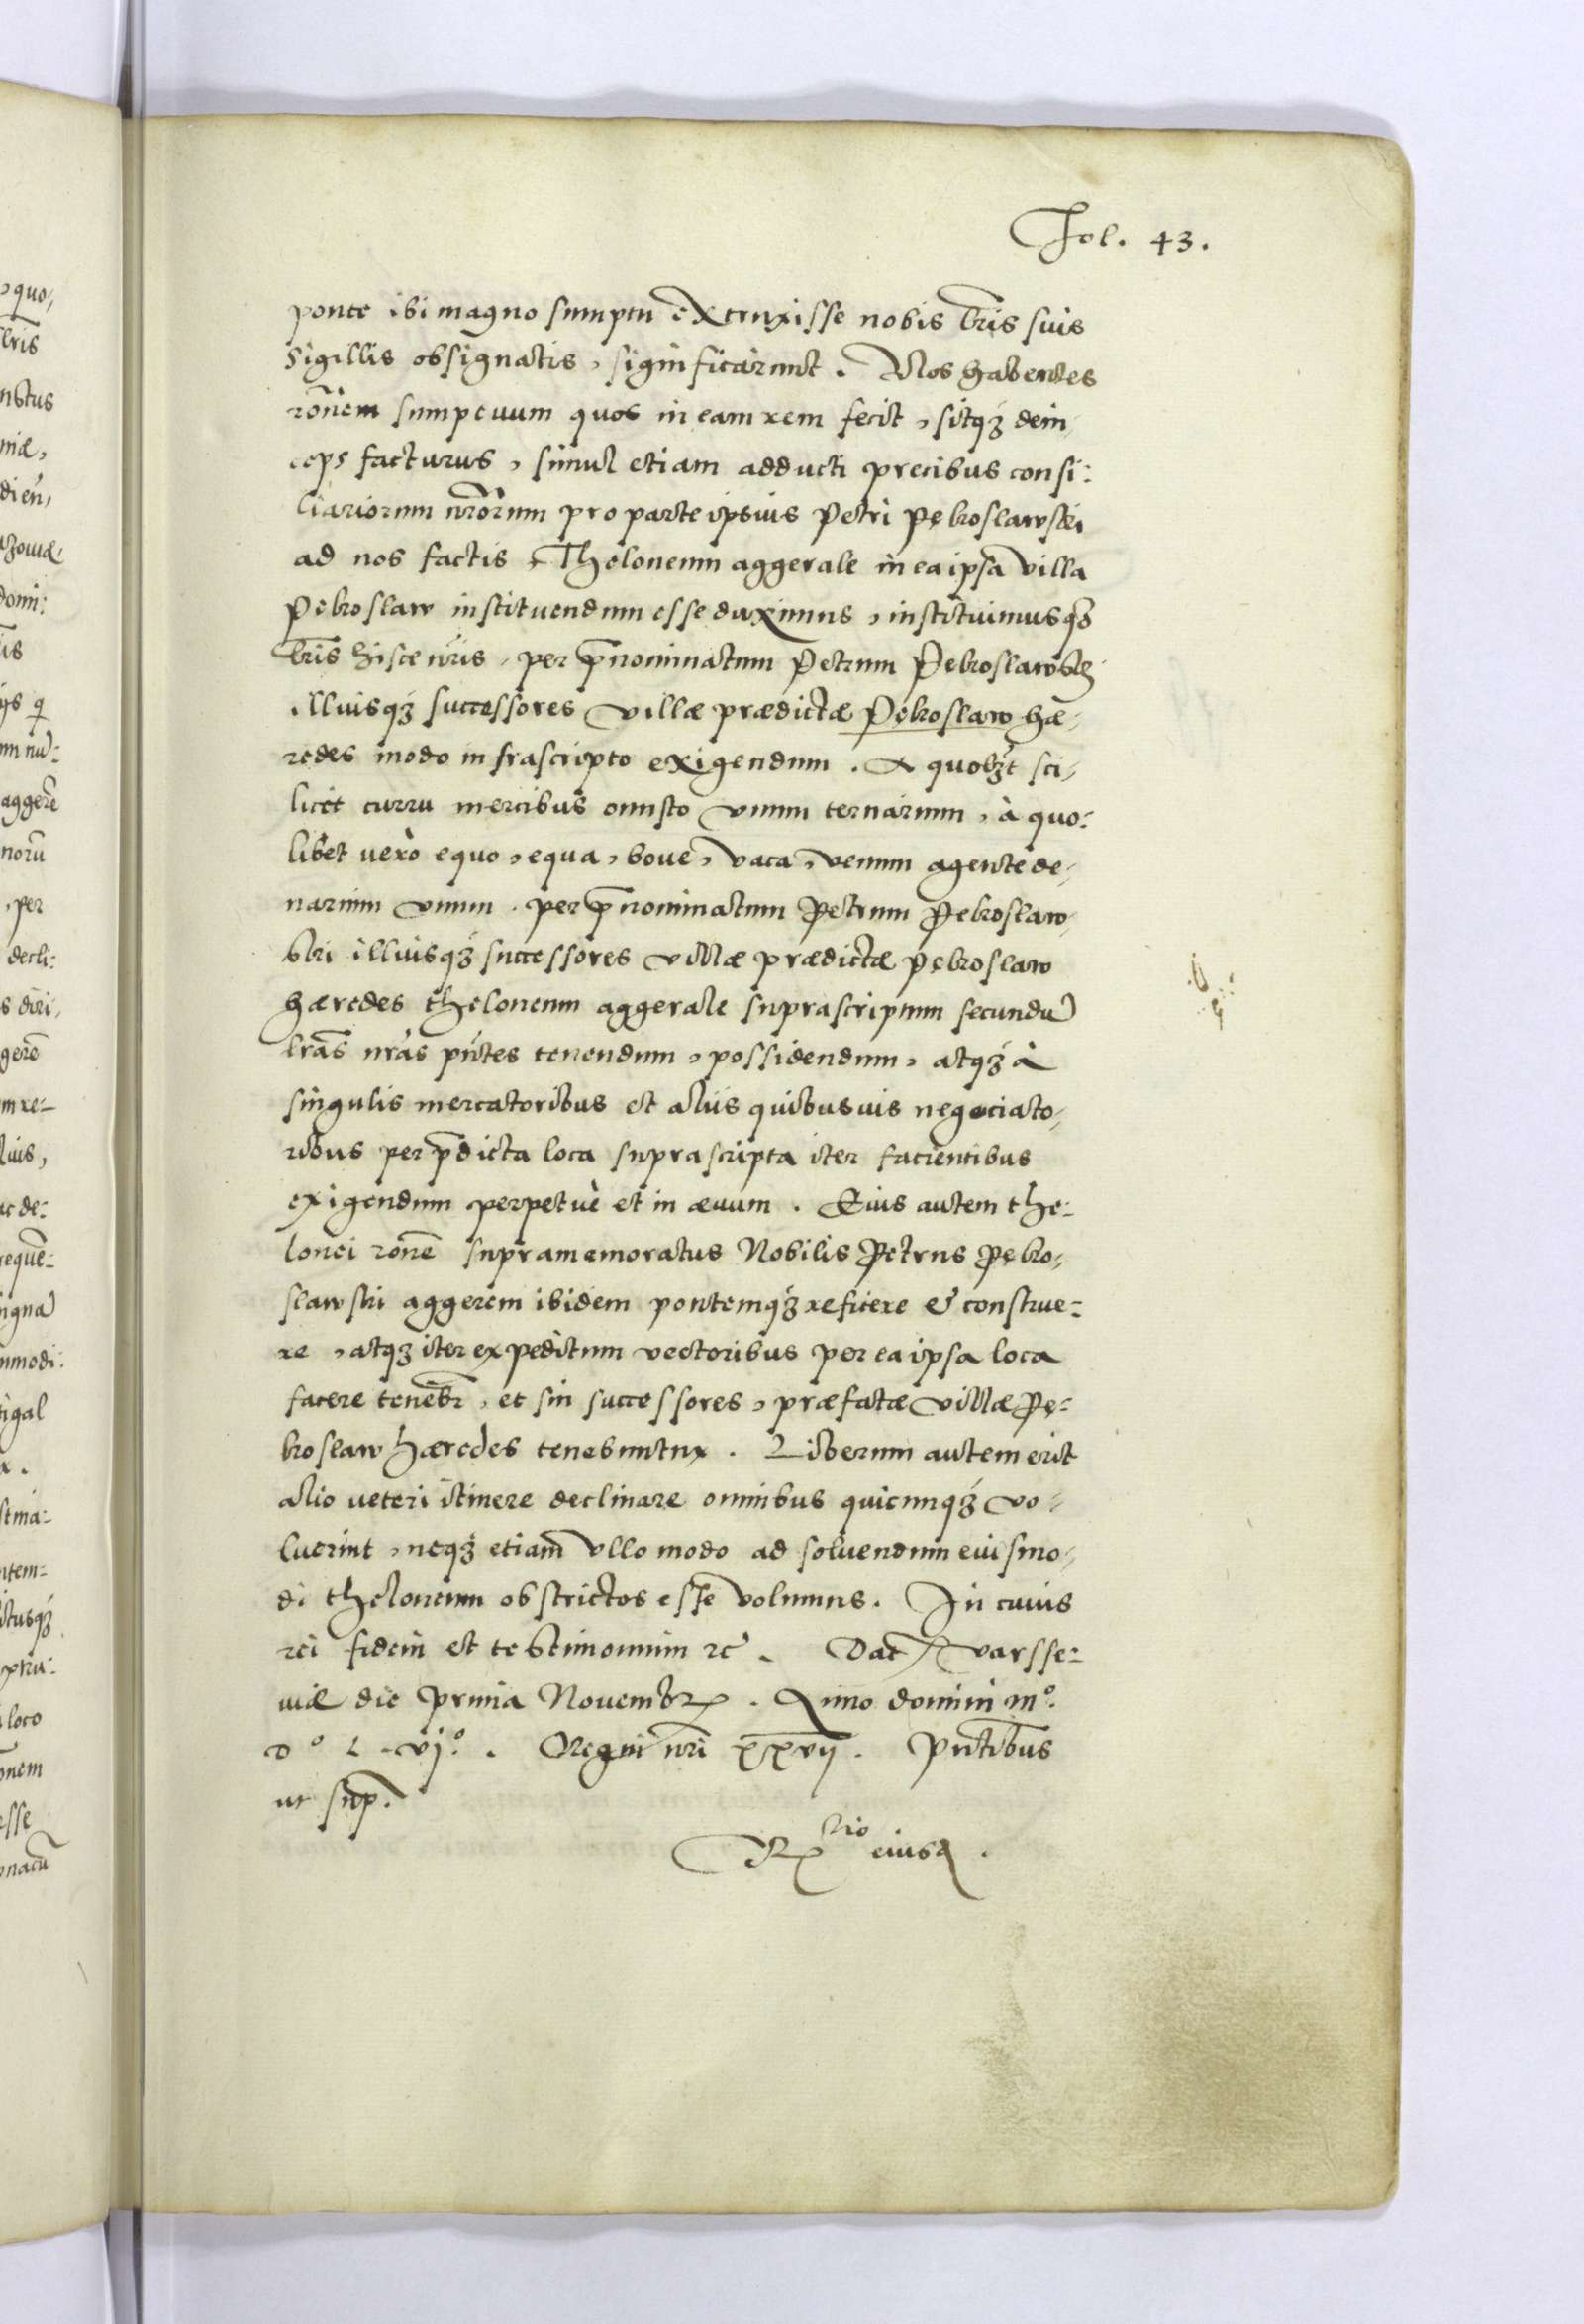 Fol. 43.
ponte ibi magno sumptu extruxisse nobis lr̃is suis
sigillis obsignatis, significarunt. Nos habentes
rõnem sumptuum quos in eam rem fecit, sitqȝ dein,
ceps facturus, simul etiam adducti precibus consi:
liariorum nr̃orum pro parte ipsius Petri Pębroslawski
ad nos factis Theloneum aggerale in ea ipsa villa
Pębroslaw instituendum esse duximus, instituimusqȝ
lr̃is hisce nr̃is, per p̃nominatum Petrum Pębroslawskȩ
illiusqȝ successores villæ prædictæ Pębroslaw hæ,
redes modo infrascripto exigendum. A quolȝt sci,
licet curru mercibus onusto vnum ternarium, à quo:
libet vero equo, equa, boue, vaca, venum agente de,
narium vnum. per p̃nominatum Petrum Pębroslaw,
ski illiusqȝ successores villæ prædictæ Pębroslaw
hæredes theloneum aggerale suprascriptum secundũ
lr̃as nr̃as pñtes tenendum, possidendum, atqȝ à
singulis mercatoribus et aliis quibusuis negociato,
ribus per p̃dicta loca suprascripta iter facientibus
exigendum perpetuè et in æuum. Eius autem the:
lonei rõne supramemoratus Nobilis Petrus Pębro,
slawski aggerem ibidem pontemqȝ reficere & construe:
re, atqȝ iter expeditum vectoribus per ea ipsa loca
facere tenebr̃, et sui successores, præfatæ villæ Pę:
broslaw hæredes tenebuntur. Liberum autem erit
alio veteri itinere declinare omnibus quicunqȝ vo,
luerint, neqȝ etiam vllo modo ad soluendum eiusmo,
di theloneum obstrictos esse volumus. In cuius
rei fidem et testimonium rc̃. Dat̃ Varsse:
uiæ die prima Novembr̃. Anno domini mº.
Dº L vjº. Regni nr̃i xxvij. Pñtibus
ut sup̃.
R̃tio eiusd̃.